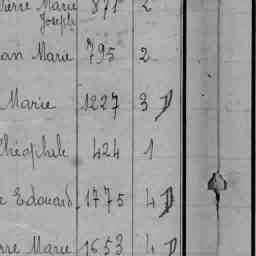 Pierre Marie 871 2
Joseph
an Marie 795 2
Marie 1227 3 D
Théophile 424 1
e Edouard 1775 4 D
rre Marie 1653 4 D